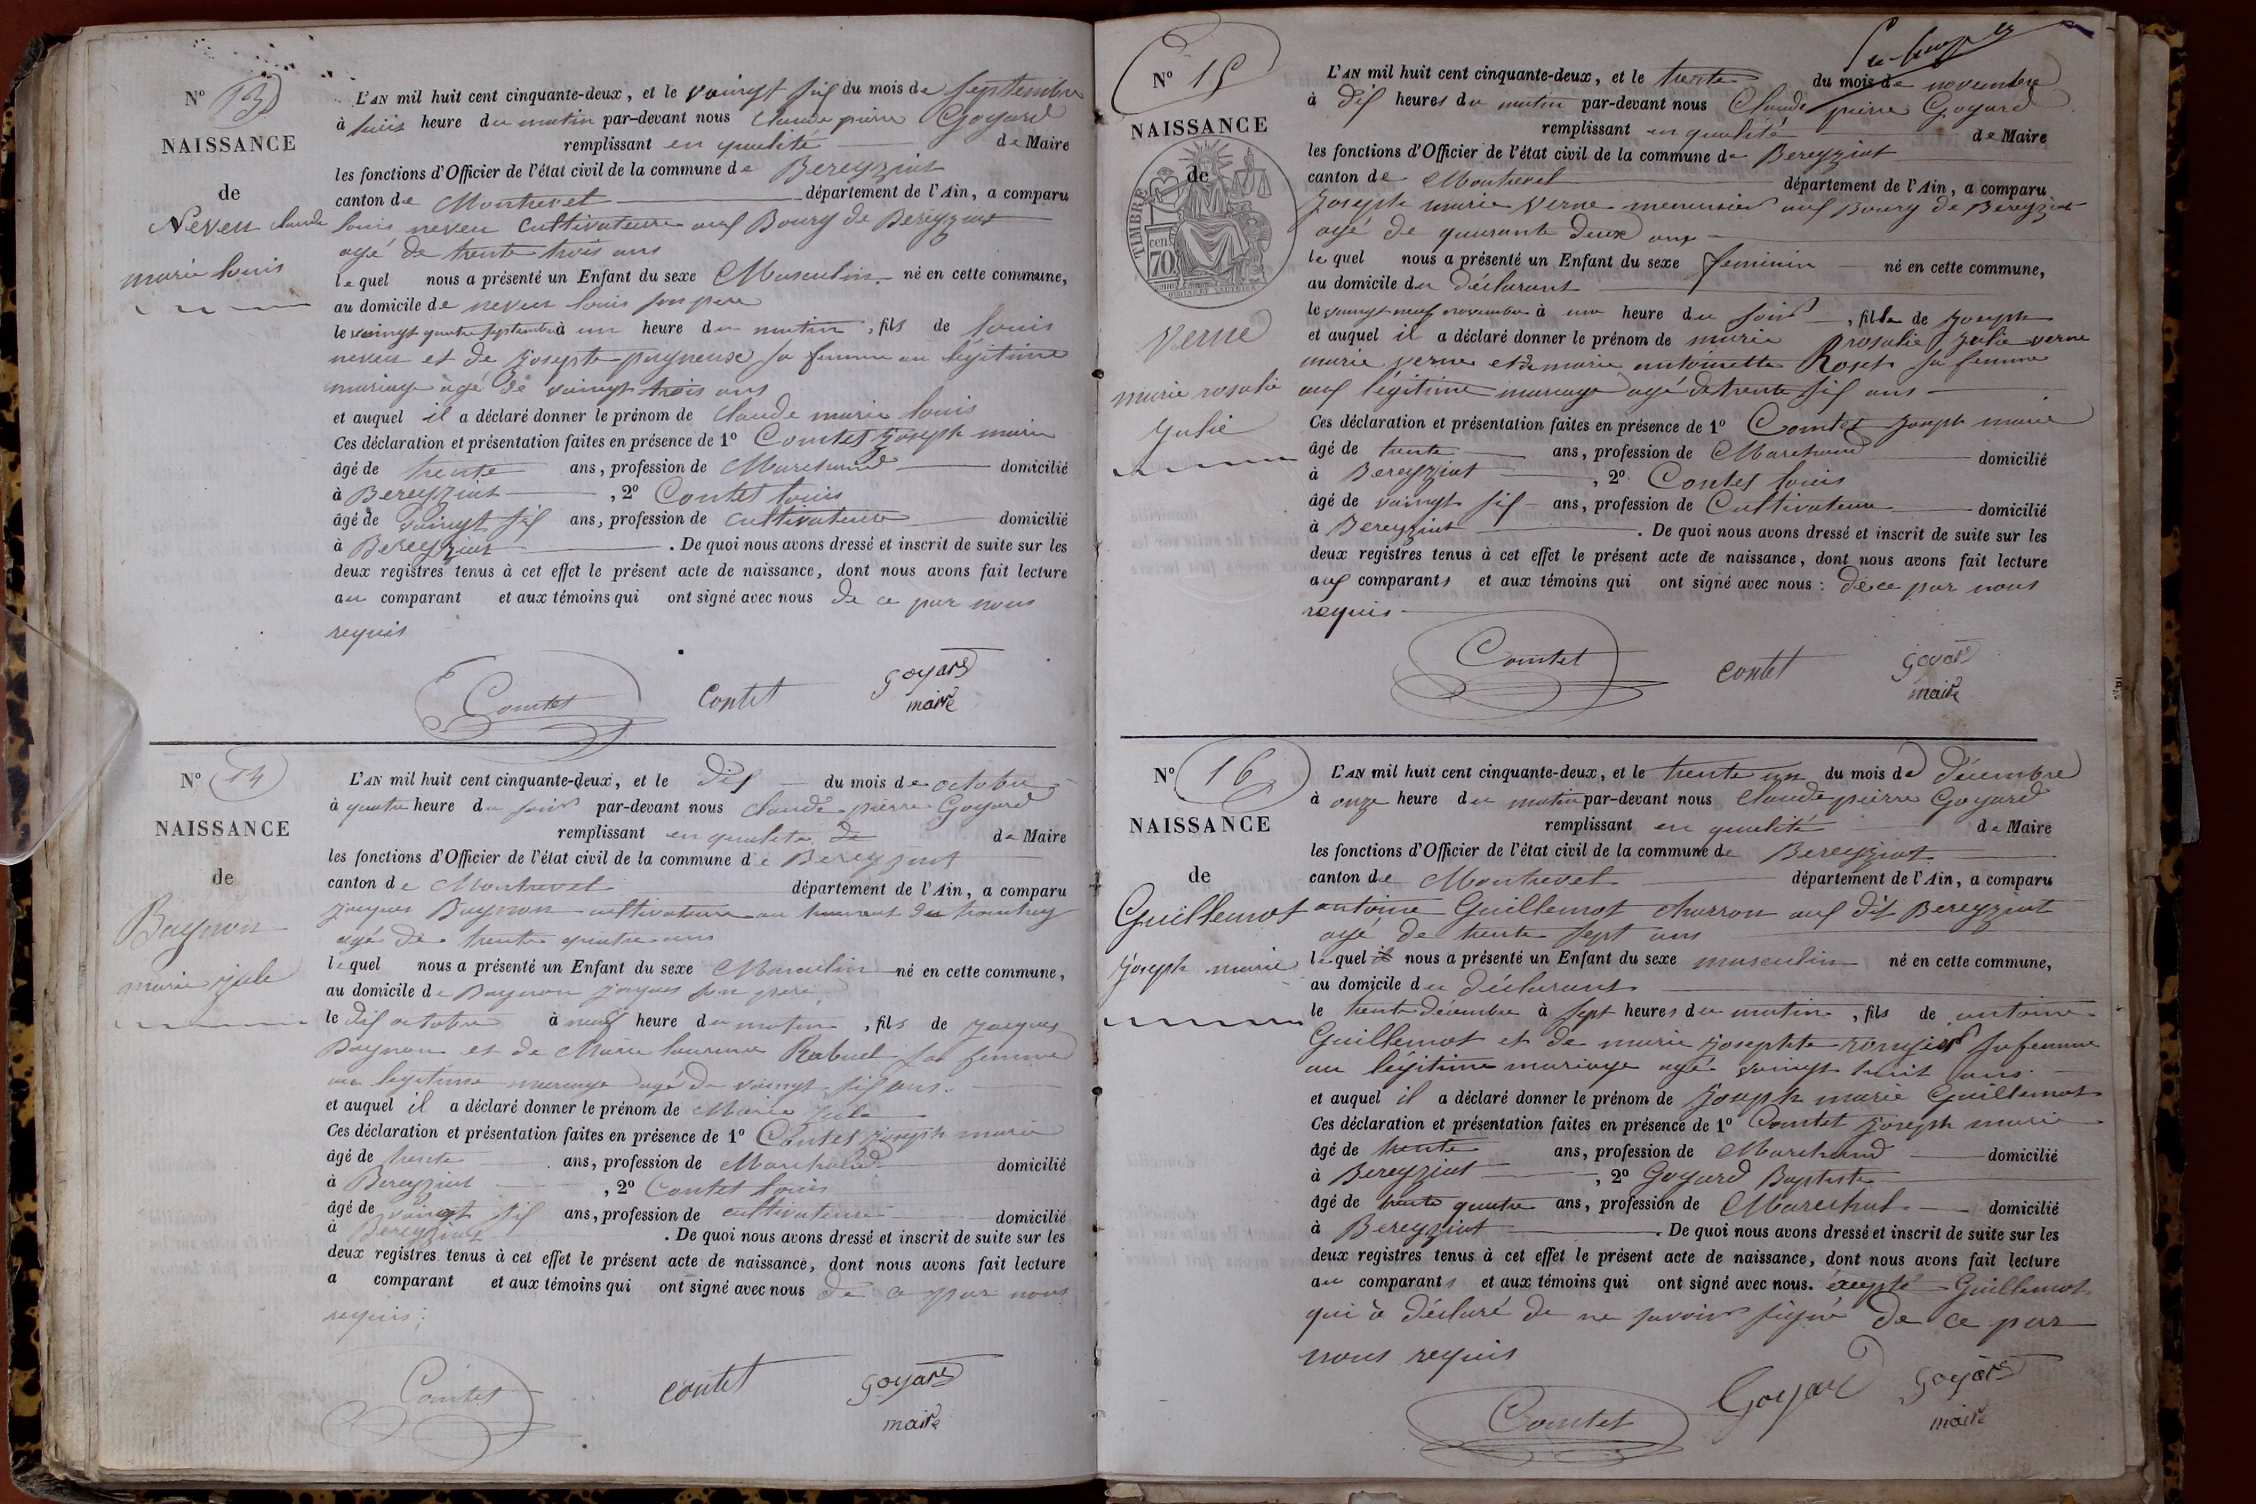 N° 13
NAISSANCE
de
Neveu Claude
marie louis
L'AN mil huit cent cinquante-deux, et le vaingt six du mois de septembre
à huis heure du matin par-devant nous Claude pierre Goyard
remplissant en qualité de Maire
les fonctions d'Officier de l'état civil de la commune de Bereyziat
canton de Montrevel département de l'Ain, a comparu
louis neveu Cultivateure aux Bourg de Bereyziat
agé de trente trois ans
lequel nous a présenté un Enfant du sexe Masculin né en cette commune,
au domicile de neveu louis son pere
le vaingt quatre septembre à un heure du matin, fils de louis
neveu et de Josepte pugneux sa femme en légitime
mariage agé de vaingt trois ans
et auquel il a déclaré donner le prénom de Claude marie louis
Ces déclaration et présentation faites en présence de 1° Comtet Joseph marie
âgé de trente ans, profession de Marchand domicilié
à Bereyziat, 2° Contet louis
âgé de vaingt six ans, profession de cultivateure domicilié
à Bereyziat. De quoi nous avons dressé et inscrit de suite sur les
deux registres tenus à cet effet le présent acte de naissance, dont nous avons fait lecture
au comparant et aux témoins qui ont signé avec nous de ce par nous
requis
Comtet contet goyard
maire
N° 14
NAISSANCE
de
Bagnon
marie jule
L'AN mil huit cent cinquante-deux, et le dix du mois de octobre
à quatre heure du soir par-devant nous Claude pierre Goyard
remplissant en qualité de de Maire
les fonctions d'Officier de l'état civil de la commune de Bereyziat
canton de Montrevel département de l'Ain, a comparu
Jacques Bagnon cultivateure au
agé de trente quatre ans
lequel nous a présenté un Enfant du sexe Masculin né en cette commune,
au domicile de Bagnon Jacques son pere
le dix octobre à neuf heure du matin, fils de Jacques
Bagnon et de Marie laurence Rabuel sa femme
en legitime mariage agé de vaingt six ans.
et auquel il a déclaré donner le prénom de Marie Jule
Ces déclaration et présentation faites en présence de 1° Comtet Joseph marie
âgé de trente ans, profession de Marchand domicilié
à Bereyziat, 2° Contet louis
âgé de vaingt six ans, profession de cultivateure domicilié
à Bereyziat. De quoi nous avons dressé et inscrit de suite sur les
deux registres tenus à cet effet le présent acte de naissance, dont nous avons fait lecture
a comparant et aux témoins qui ont signé avec nous de ce par nous
requis;
Comtet contet goyard
maire
N° 15
NAISSANCE
de
TIMBRE
70 cen
Verne
marie rosalie
Julie
L'AN mil huit cent cinquante-deux, et le trente du mois de novembre
à dix heures du matin par-devant nous Claude pierre Goyard
remplissant en qualité de Maire
les fonctions d'Officier de l'état civil de la commune de Bereyziat
canton de Montrevel département de l'Ain, a comparu
Joseph marie Verne menuisier aux Bourg de Bereyziat
agé de quarante deux ans
lequel nous a présenté un Enfant du sexe feminin né en cette commune,
au domicile du déclarant
le vaingt neuf novembre à une heure du soir, fille de Joseph
et auquel il a déclaré donner le prénom de marie rosalie Julie verne
marie verne et de marie antoinette Roset sa femme
aux légitime mariage agé de trente six ans
Ces déclaration et présentation faites en présence de 1° Comtet Joseph marie
âgé de trente ans, profession de Marchand domicilié
à Bereyziat, 2° Contet louis
âgé de vaingt six ans, profession de Cultivateure domicilié
à Bereyziat. De quoi nous avons dressé et inscrit de suite sur les
deux registres tenus à cet effet le présent acte de naissance, dont nous avons fait lecture
aux comparants et aux témoins qui ont signé avec nous: de ce par nous
requis
Comtet contet goyard
maire
N° 16
NAISSANCE
de
Guillemot
Joseph marie
L'AN mil huit cent cinquante-deux, et le trente un du mois de décembre
à onze heure du matin par-devant nous Claude pierre Goyard
remplissant en qualité de Maire
les fonctions d'Officier de l'état civil de la commune de Bereyziat
canton de Montrevel département de l'Ain, a comparu
antoine Guillemot charron aux dit Bereyziat
agé de trente sept ans
lequel il nous a présenté un Enfant du sexe masculin né en cette commune,
au domicile du déclarant
le trente décembre à sept heures du matin, fils de antoine
Guillemot et de marie Josephte sa femme
au légitime mariage agé vaingt huit ans.
et auquel il a déclaré donner le prénom de Joseph marie Guillemot
Ces déclaration et présentation faites en présence de 1° Comtet Joseph marie
âgé de trente ans, profession de Marchand domicilié
à Bereyziat, 2° Goyard Baptiste
âgé de trente quatre ans, profession de Marechal domicilié
à Bereyziat. De quoi nous avons dressé et inscrit de suite sur les
deux registres tenus à cet effet le présent acte de naissance, dont nous avons fait lecture
au comparants et aux témoins qui ont signé avec nous. éxcepté Guillemot
qui à déclaré de ne savoir signé de ce par
nous requis
Comtet Goyard goyard
maire